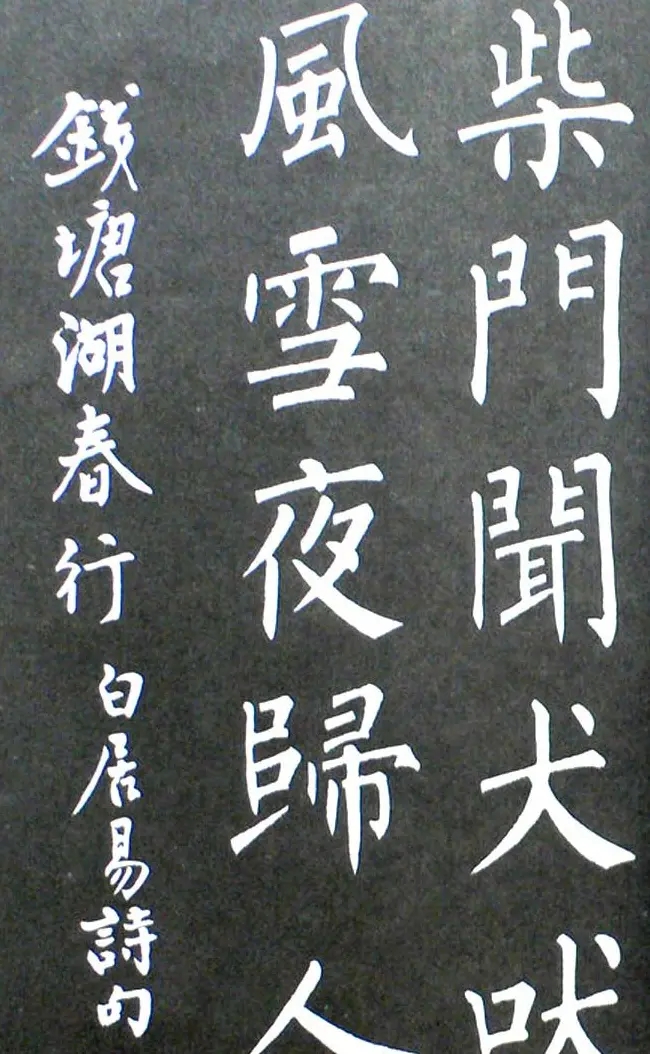 柴門聞犬吠
風雪夜歸人
錢塘湖春行 白居易詩句